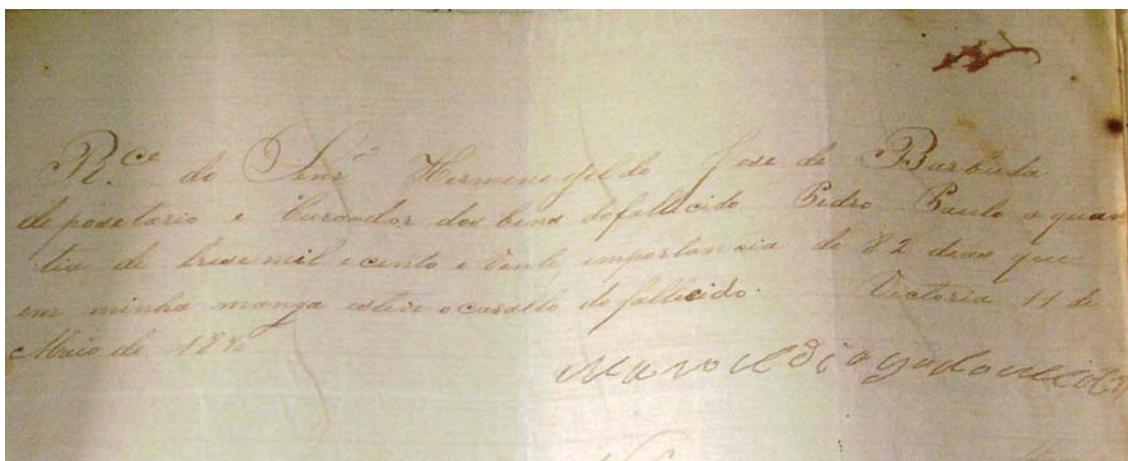 R.ce do Senr.º Hermenegildo Jose de Barbuda
depozetario e Curador dos bens do fallicido Pedro Paulo a quan
tia de trese mil e cento e vente, importancia de 82 dias que
em minha manga esteve o cavallo do fallicido. Victoria 11 de
Maio de
Manoel